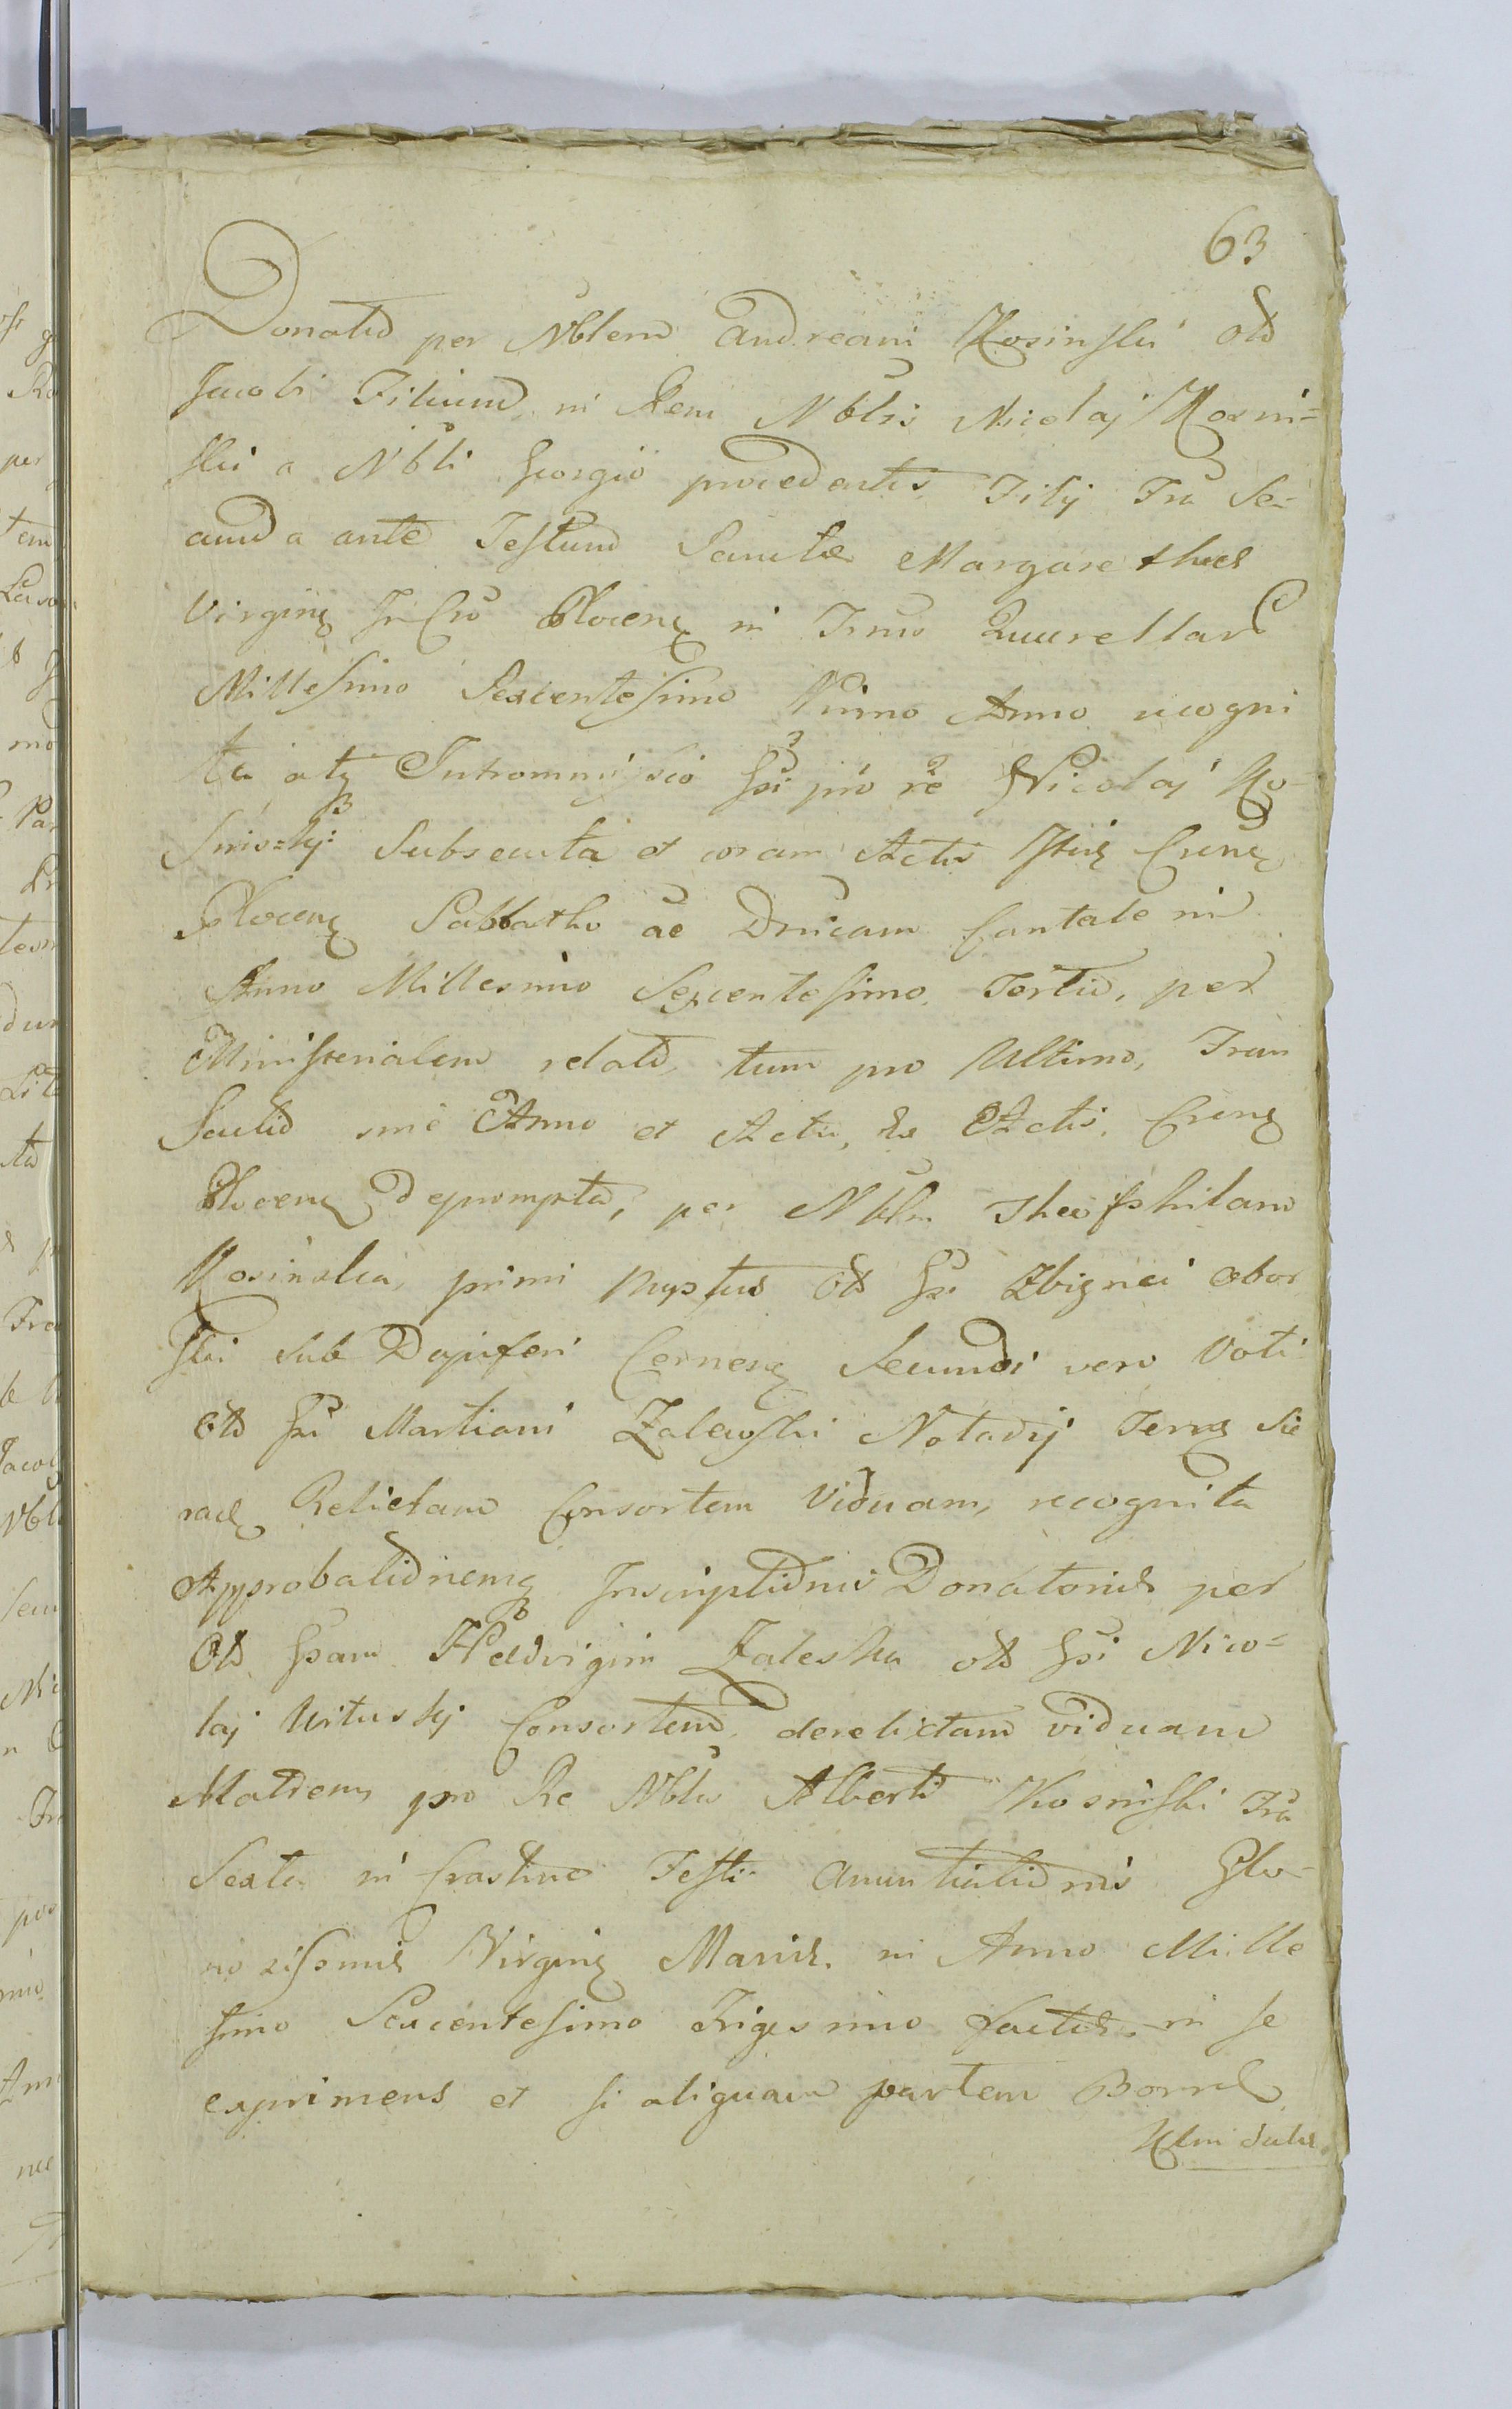 63
Donatio per Nblem Andream Kosinski olb
Jacobi Filium in Rem Nblis Nicolaj Kosin=
ski a Nbli Georgio procedentis Filij Fria Se-
cunda ante Festum Sanctae Margarethae
Virginis In Cro Plocens in Trno Querellar
Millesimo Sexcentesimo Primo Anno recogni
ta atq Intromissio Gsi pro re Nicolaj Ko-
sinskj Subsecuta et coram Actis Istis Crens
Plocens Sabbatho ae Dnicam Cantate in
Anno Millesimo Sexcentesimo Tertio, per
Ministerialem relatio tum pro Ultimo, Tran
sactio sine Anno et Actu, Ex Actis Crens
Plocens deprompta, per Nblm Theophilam
Kosinska primi Nuptus olb Gsi Zbignei Obor
ski Sub Dapiferi Cernens Secundi vero Voti
olb Gsi Martiani Zalewski Notarij Terrs Sie
rads Relictam Consortem Viduam, recognita
Approbationemq Inscriptionis Donatoriae per
olb Gsam Hedvigim Zaleska olb Gsi Nico=
laj Urituskj Consortem, derelictam viduam
Matrem pro Re Nblis Alberti Kosinski Fria
Sexta in Crastino Festi Anuntiationis Glo-
riosissimae Virginis Mariae in Anno Mille
simo Sexcentesimo Trigesimo factae in se
exprimens et si aliquam partem Bonor